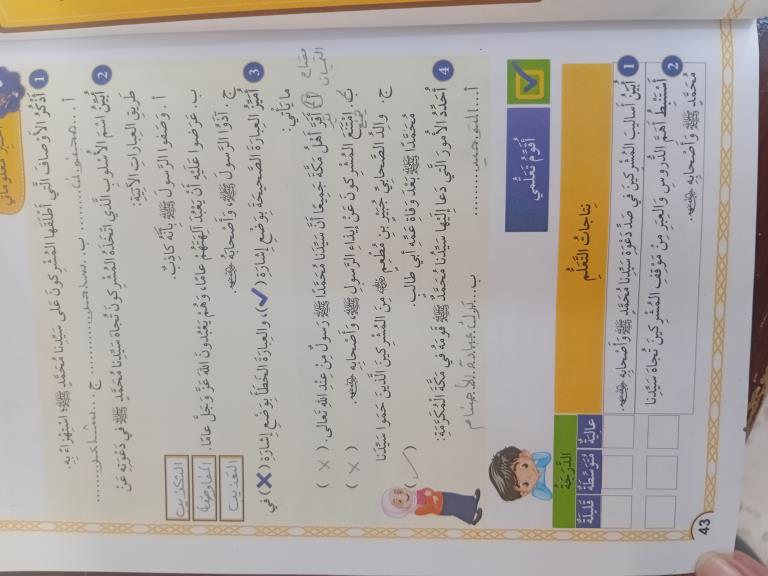 أختبر معلوماتي
1 أَذْكُرُ الأَوْصافَ الَّتي أَطْلَقَها المُشْرِكونَ عَلى سَيِّدِنا مُحَمَّدٍ ﷺ؛ اسْتِهْزاءً بِهِ.
أ ... مجنون ... ب ... ساحر ... ج ...
2 أُبَيِّنُ اسْمَ الأُسْلوبِ الَّذي اتَّخَذَهُ المُشْرِكونَ تُجاهَ سَيِّدِنا مُحَمَّدٍ ﷺ في دَعْوَتِهِ عَنْ
طَريقِ العِباراتِ الآتِيَةِ:
أ . وَصَفوا الرَّسولَ ﷺ بِأَنَّهُ كاذِبٌ. التكذيب
ب. عَرَضوا عَلَيْهِ أَنْ يَعْبُدَ آلِهَتَهُمْ عامًا، وَهُمْ يَعْبُدونَ اللهَ عَزَّ وَجَلَّ عامًا. المفاوضة
ج . آذَوُا الرَّسولَ ﷺ، وَأَصْحابَهُ. التعذيب
3 أُمَيِّزُ العِبارَةَ الصَّحيحَةَ بِوَضْعِ إِشارَةِ (✓)، وَالعِبارَةَ الخَطَأَ بِوَضْعِ إِشارَةِ (✗) في
ما يَأْتي:
أ. أَقَرَّ أَهْلُ مَكَّةَ جَميعًا أَنَّ سَيِّدَنا مُحَمَّدًا ﷺ رَسولٌ مِنْ عِنْدِ اللهِ تَعالى. (✗)
ب. امْتَنَعَ المُشْرِكونَ عَنْ إيذاءِ الرَّسولِ ﷺ، وَأَصْحابِهِ. (✗)
ج. والِدُ الصَّحابِيِّ جُبَيْرِ بْنِ مُطْعِمٍ مِنَ المُشْرِكينَ الَّذينَ حَمَوْا سَيِّدَنا
مُحَمَّدًا ﷺ بَعْدَ وَفاةِ عَمِّهِ أَبي طالِبٍ. (✓)
4 أُحَدِّدُ الأُمورَ الَّتي دَعا إِلَيْها سَيِّدُنا مُحَمَّدٌ ﷺ قَوْمَهُ في مَكَّةَ المُكَرَّمَةِ:
أ... التوحيد ... ب. ترك عبادة الأصنام
أُقَوِّمُ تَعَلُّمي
نِتاجاتُ التَّعَلُّمِ الدَّرَجَةُ
عالِيَةٌ مُتَوَسِّطَةٌ قَليلَةٌ
1 أُبَيِّنُ أَساليبَ المُشْرِكينَ في صَدِّ دَعْوَةِ سَيِّدِنا مُحَمَّدٍ ﷺ وَأَصْحابِهِ.
2 أَسْتَنْبِطُ أَهَمَّ الدُّروسِ وَالعِبَرِ مِنْ مَوْقِفِ المُشْرِكينَ تُجاهَ سَيِّدِنا
مُحَمَّدٍ ﷺ وَأَصْحابِهِ.
43